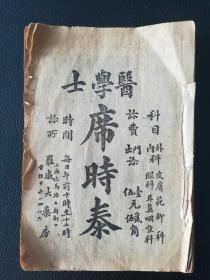 醫學士
科目
外科 皮膚花柳科
內科 眼科耳鼻咽喉科
診費
門診 壹元貳角
出診 伍元
席時泰
時間 每日午前十時至十二時
診所
羅威大藥房